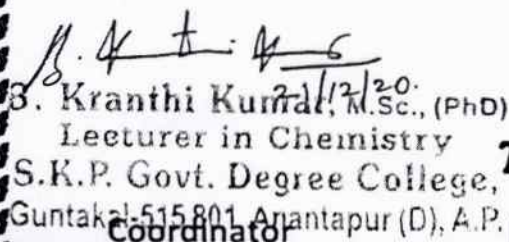 21/12/20.
B. Kranthi Kumar, M.Sc., (PhD)
Lecturer in Chemistry
S.K.P. Govt. Degree College,
Guntakal-515801, Anantapur (D), A.P.
Coordinator